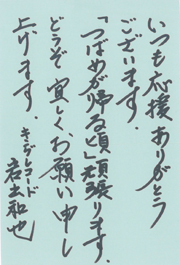 いつも応援ありがとう
ございます。
「つばめが帰る頃」頑張ります。
どうぞ宜しくお願い申し
上げます。
キングレコード
岩出和也